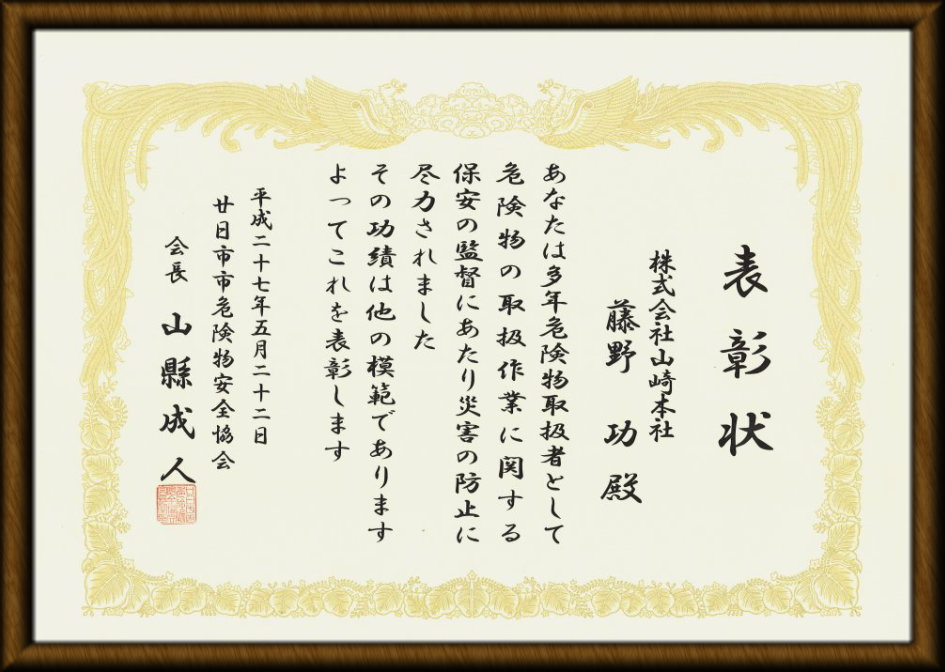 表彰状
株式会社山崎本社
藤野 功 殿
あなたは多年危険物取扱者として
危険物の取扱作業に関する
保安の監督にあたり災害の防止に
尽力されました
その功績は他の模範であります
よってこれを表彰します
平成二十七年五月二十二日
廿日市市危険物安全協会
会長 山縣成人